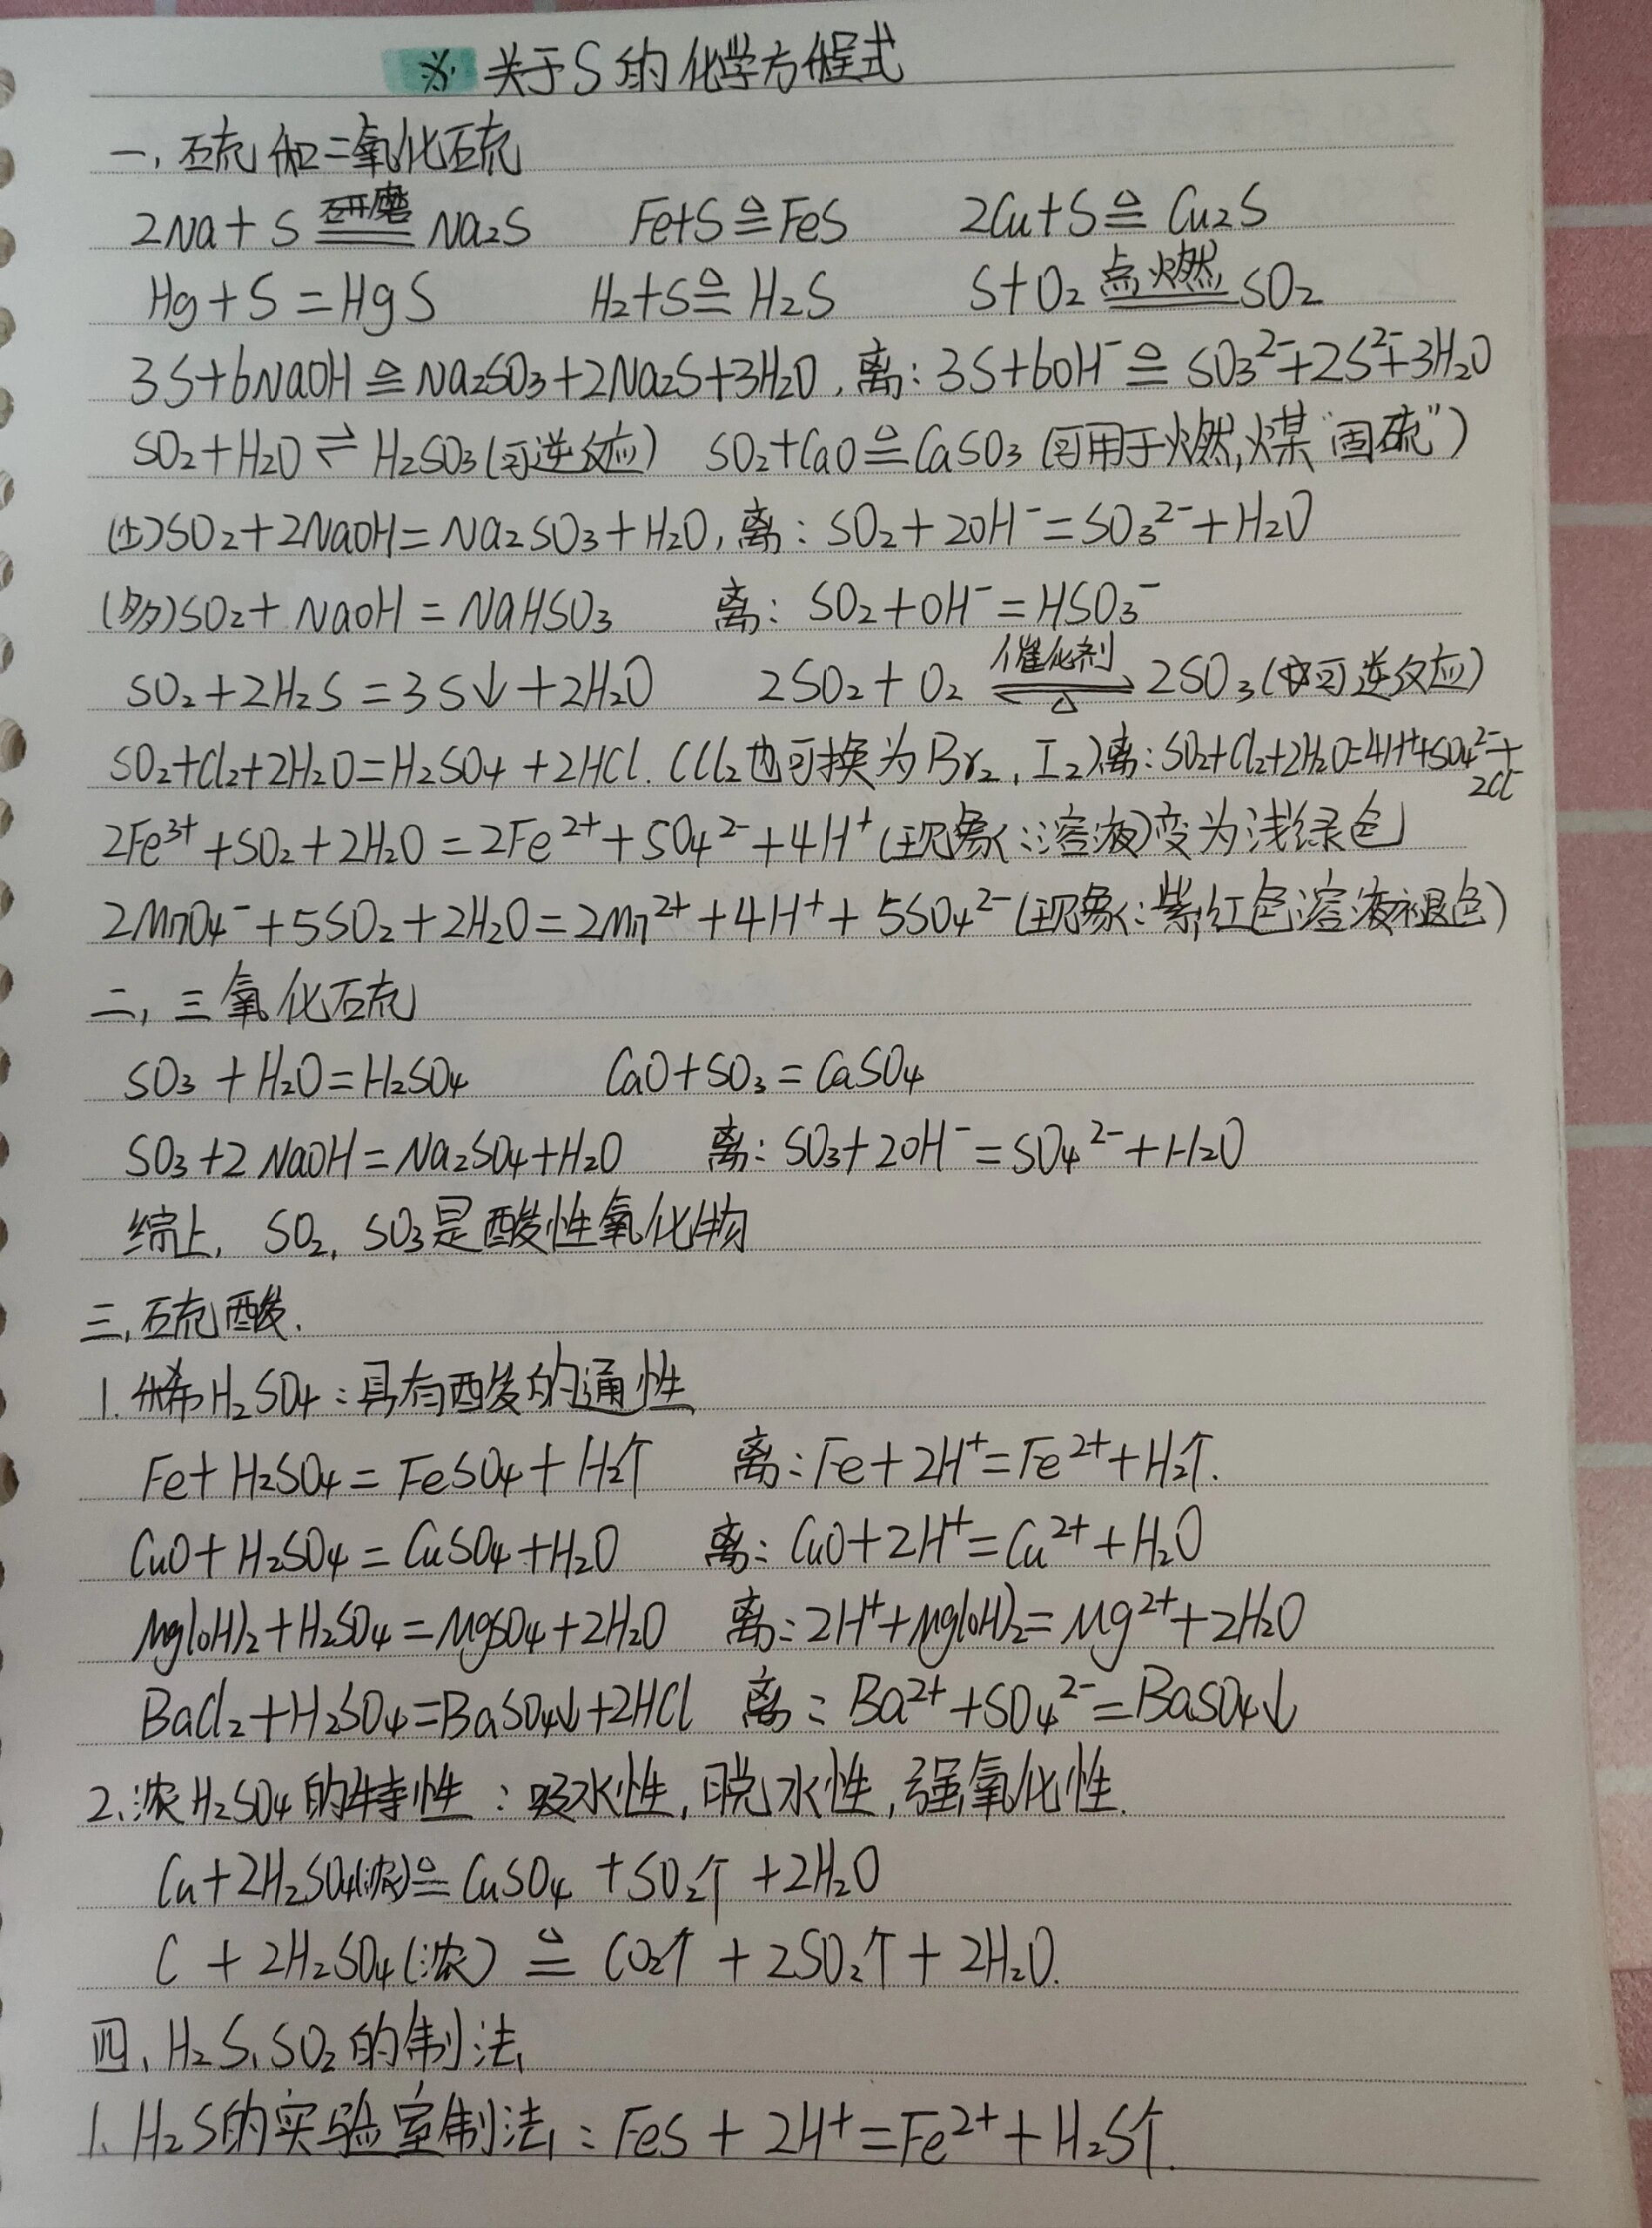 ※ 关于S的化学方程式
一, 硫和二氧化硫
2Na + S ═研磨═ Na₂S Fe+S ≜ FeS 2Cu+S ≜ Cu₂S
Hg + S = HgS H₂+S ≜ H₂S S+O₂ ═点燃═ SO₂
3S+6NaOH ≜ Na₂SO₃+2Na₂S+3H₂O, 离: 3S+6OH⁻ ≜ SO₃²⁻+2S²⁻+3H₂O
SO₂+H₂O ⇌ H₂SO₃(可逆反应) SO₂+CaO ≜ CaSO₃ (可用于燃煤"固硫")
SO₂+2NaOH = Na₂SO₃+H₂O, 离: SO₂+2OH⁻ = SO₃²⁻+H₂O
(多)SO₂+NaOH = NaHSO₃ 离: SO₂+OH⁻ = HSO₃⁻
SO₂+2H₂S = 3S↓+2H₂O 2SO₂+O₂ ⇌催化剂△ 2SO₃(可逆反应)
SO₂+Cl₂+2H₂O=H₂SO₄+2HCl. (Cl₂也可换为Br₂, I₂)离: SO₂+Cl₂+2H₂O=4H⁺+SO₄²⁻+2Cl⁻
2Fe³⁺+SO₂+2H₂O = 2Fe²⁺+SO₄²⁻+4H⁺(现象: 溶液变为浅绿色)
2MnO₄⁻+5SO₂+2H₂O = 2Mn²⁺+4H⁺+5SO₄²⁻(现象: 紫红色溶液褪色)
二, 三氧化硫
SO₃+H₂O=H₂SO₄ CaO+SO₃=CaSO₄
SO₃+2NaOH=Na₂SO₄+H₂O 离: SO₃+2OH⁻=SO₄²⁻+H₂O
综上, SO₂, SO₃是酸性氧化物
三, 硫酸.
1. 稀H₂SO₄: 具有酸的通性
Fe+H₂SO₄=FeSO₄+H₂↑ 离: Fe+2H⁺=Fe²⁺+H₂↑.
CuO+H₂SO₄=CuSO₄+H₂O 离: CuO+2H⁺=Cu²⁺+H₂O
Mg(OH)₂+H₂SO₄=MgSO₄+2H₂O 离: 2H⁺+Mg(OH)₂=Mg²⁺+2H₂O
BaCl₂+H₂SO₄=BaSO₄↓+2HCl 离: Ba²⁺+SO₄²⁻=BaSO₄↓
2、浓H₂SO₄的特性: 吸水性, 脱水性, 强氧化性.
Cu+2H₂SO₄(浓) ≜ CuSO₄+SO₂↑+2H₂O
C+2H₂SO₄(浓) ≜ CO₂↑+2SO₂↑+2H₂O.
四、H₂S、SO₂的制法
1、H₂S的实验室制法: FeS+2H⁺=Fe²⁺+H₂S↑.